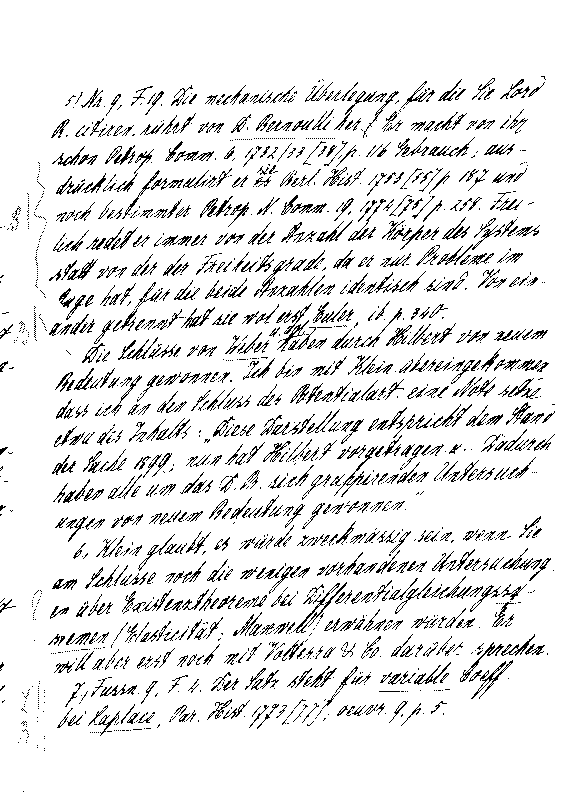 5) Nr. 9, F. 19. Die mechanische Überlegung, für die Sie Lord
R. citiren, rührt von D. Bernoulli her. (Er macht von ihr
schon Petrop. Comm. 6, 1732/33 [38] p. 116 Gebrauch; aus-
drücklich formulirt er sie Berl. Hist. 1753 [55] p. 187 und
noch bestimmter Petrop. N. Comm. 19, 1774 [75] p. 258. Frei-
lich redet er immer von der Anzahl der Körper des Systems
statt von der der Freiheitsgrade, da er nur Probleme im
Auge hat, für die beide Anzahlen identisch sind. Von ein-
ander getrennt hat sie wol erst Euler, ib. p. 340.
Die Schlüsse von Weber u. aa. haben durch Hilbert von neuem
Bedeutung gewonnen. Ich bin mit Klein übereingekommen
dass ich an den Schluss des Potentialart. eine Note setze
etwa des Inhalts: „Diese Darstellung entspricht dem Stand
der Sache 1899; nun hat Hilbert vorgetragen u... Dadurch
haben alle um das D. P. sich gruppirenden Untersuch-
ungen von neuem Bedeutung gewonnen."
6, Klein glaubt, es würde zweckmässig sein, wenn Sie
am Schlusse noch die wenigen vorhandenen Untersuchung-
en über Existenztheoreme bei Differentialgleichungssy-
stemen (Elasticität, Maxwell) erwähnen würden. Er
will aber erst noch mit Volterra & Co. darüber sprechen.
7, Fussn. 9, F. 4. Der Satz steht für variable Coeff.
bei Laplace, Par. Hist. 1773 [77], oeuvr. 9, p. 5.